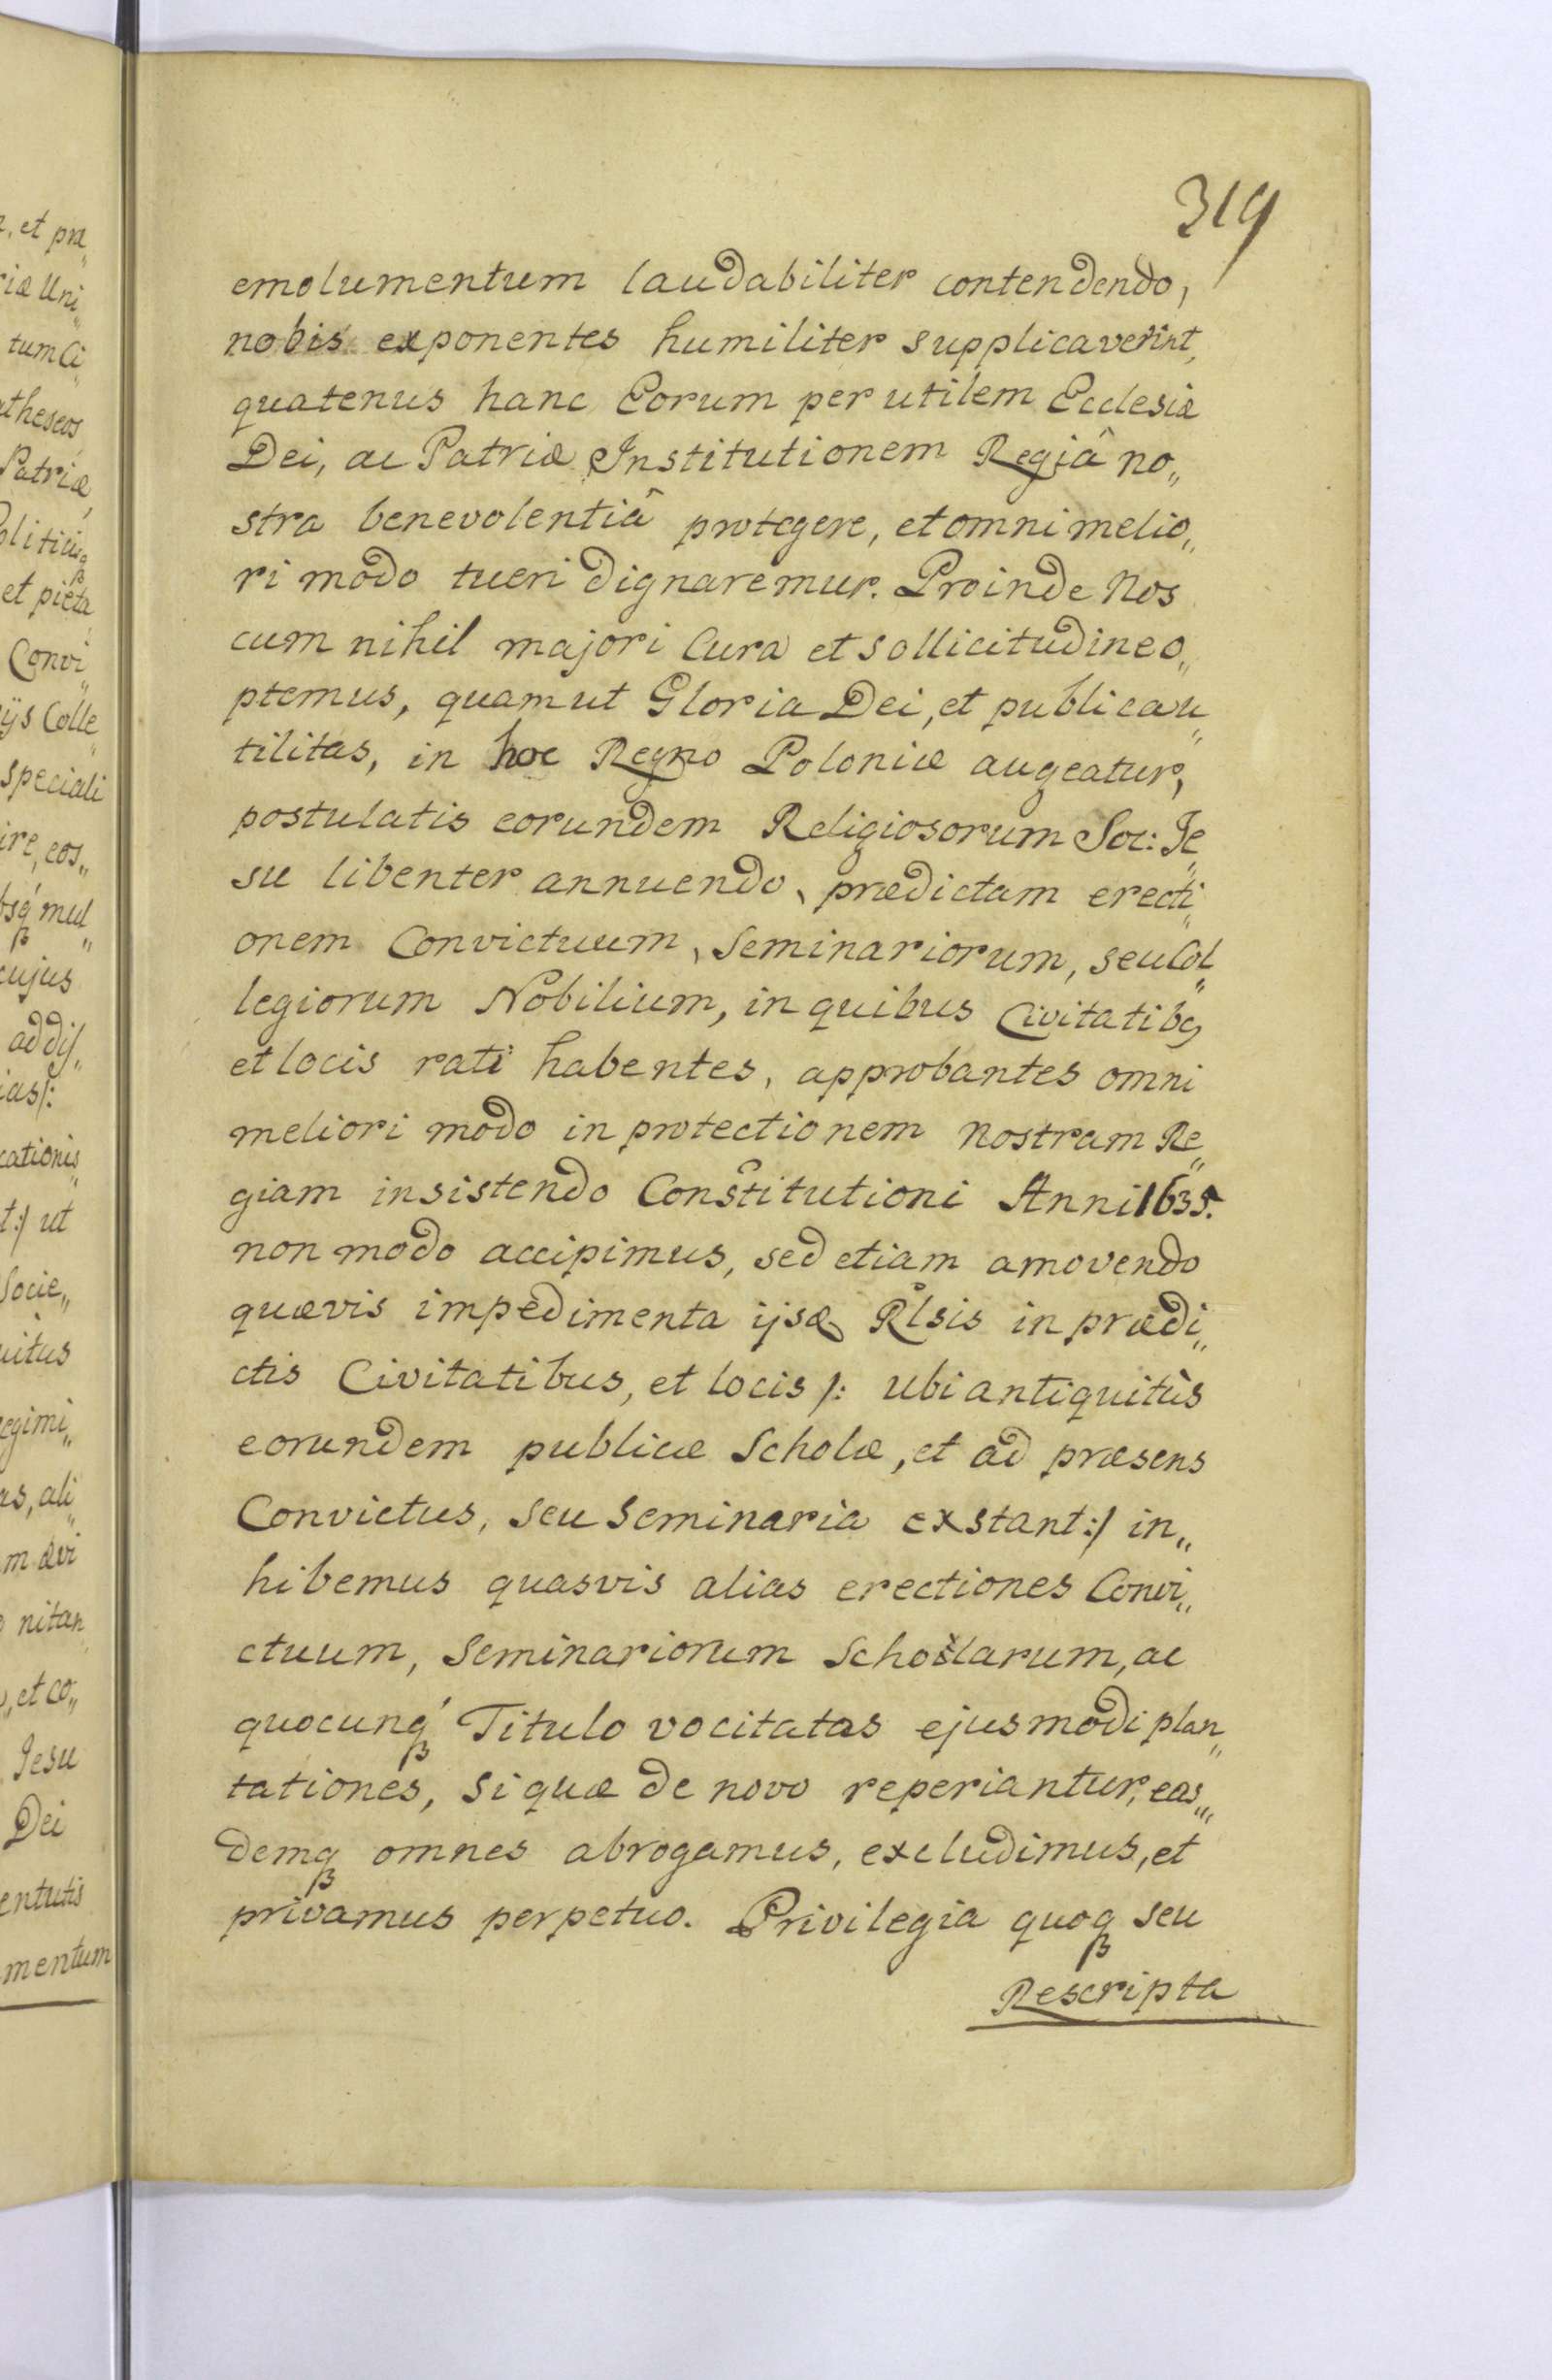 319
emolumentum laudabiliter contendendo,
nobis exponentes humiliter supplicaverint,
quatenus hanc Eorum per utilem Ecclesiæ
Dei, ac Patriæ Institutionem Regiâ no„
stra benevolentiâ protegere, et omni melio„
ri modo tueri dignaremur. Proinde Nos
cum nihil majori Cura et sollicitudine o„
ptemus, quam ut Gloria Dei, et publica u„
tilitas, in hoc Regno Poloniæ augeatur,
postulatis eorundem Religiosorum Soc: Je„
su libenter annuendo, prædictam erecti„
onem Convictuum, Seminariorum, seu Col„
legiorum Nobilium, in quibus Civitatibq
et locis rati habentes, approbantes omni
meliori modo in protectionem nostram Re„
giam insistendo Constitutioni Anni 1635.
non modo accipimus, sed etiam amovendo
quævis impedimenta ijsd Rlsis in prædi„
ctis Civitatibus, et locis /: ubi antiquitùs
eorundem publicæ Scholæ, et ad præsens
Convictus, seu Seminaria exstant :/ in„
hibemus quasvis alias erectiones Convi„
ctuum, Seminariorum Scholarum, ac
quocunq́ Titulo vocitatas ejusmodi plan„
tationes, si quæ de novo reperiantur, eas„
demq omnes abrogamus, excludimus, et
privamus perpetuo. Privilegia quoq seu
Rescripta
et præ„
riæ Uni„
tum Ci„
atheseos
Patriæ,
oliticiq
et pieta
Convi„
ijs Colle„
speciali
ire, eos„
bsq́ mul„
cujus
ad dis„
ias /:
cationis
t :/ ut
Socie„
uitus
egimi„
us, ali„
m ævi
nitan„
, et co„
Jesu
Dei
entutis
mentum